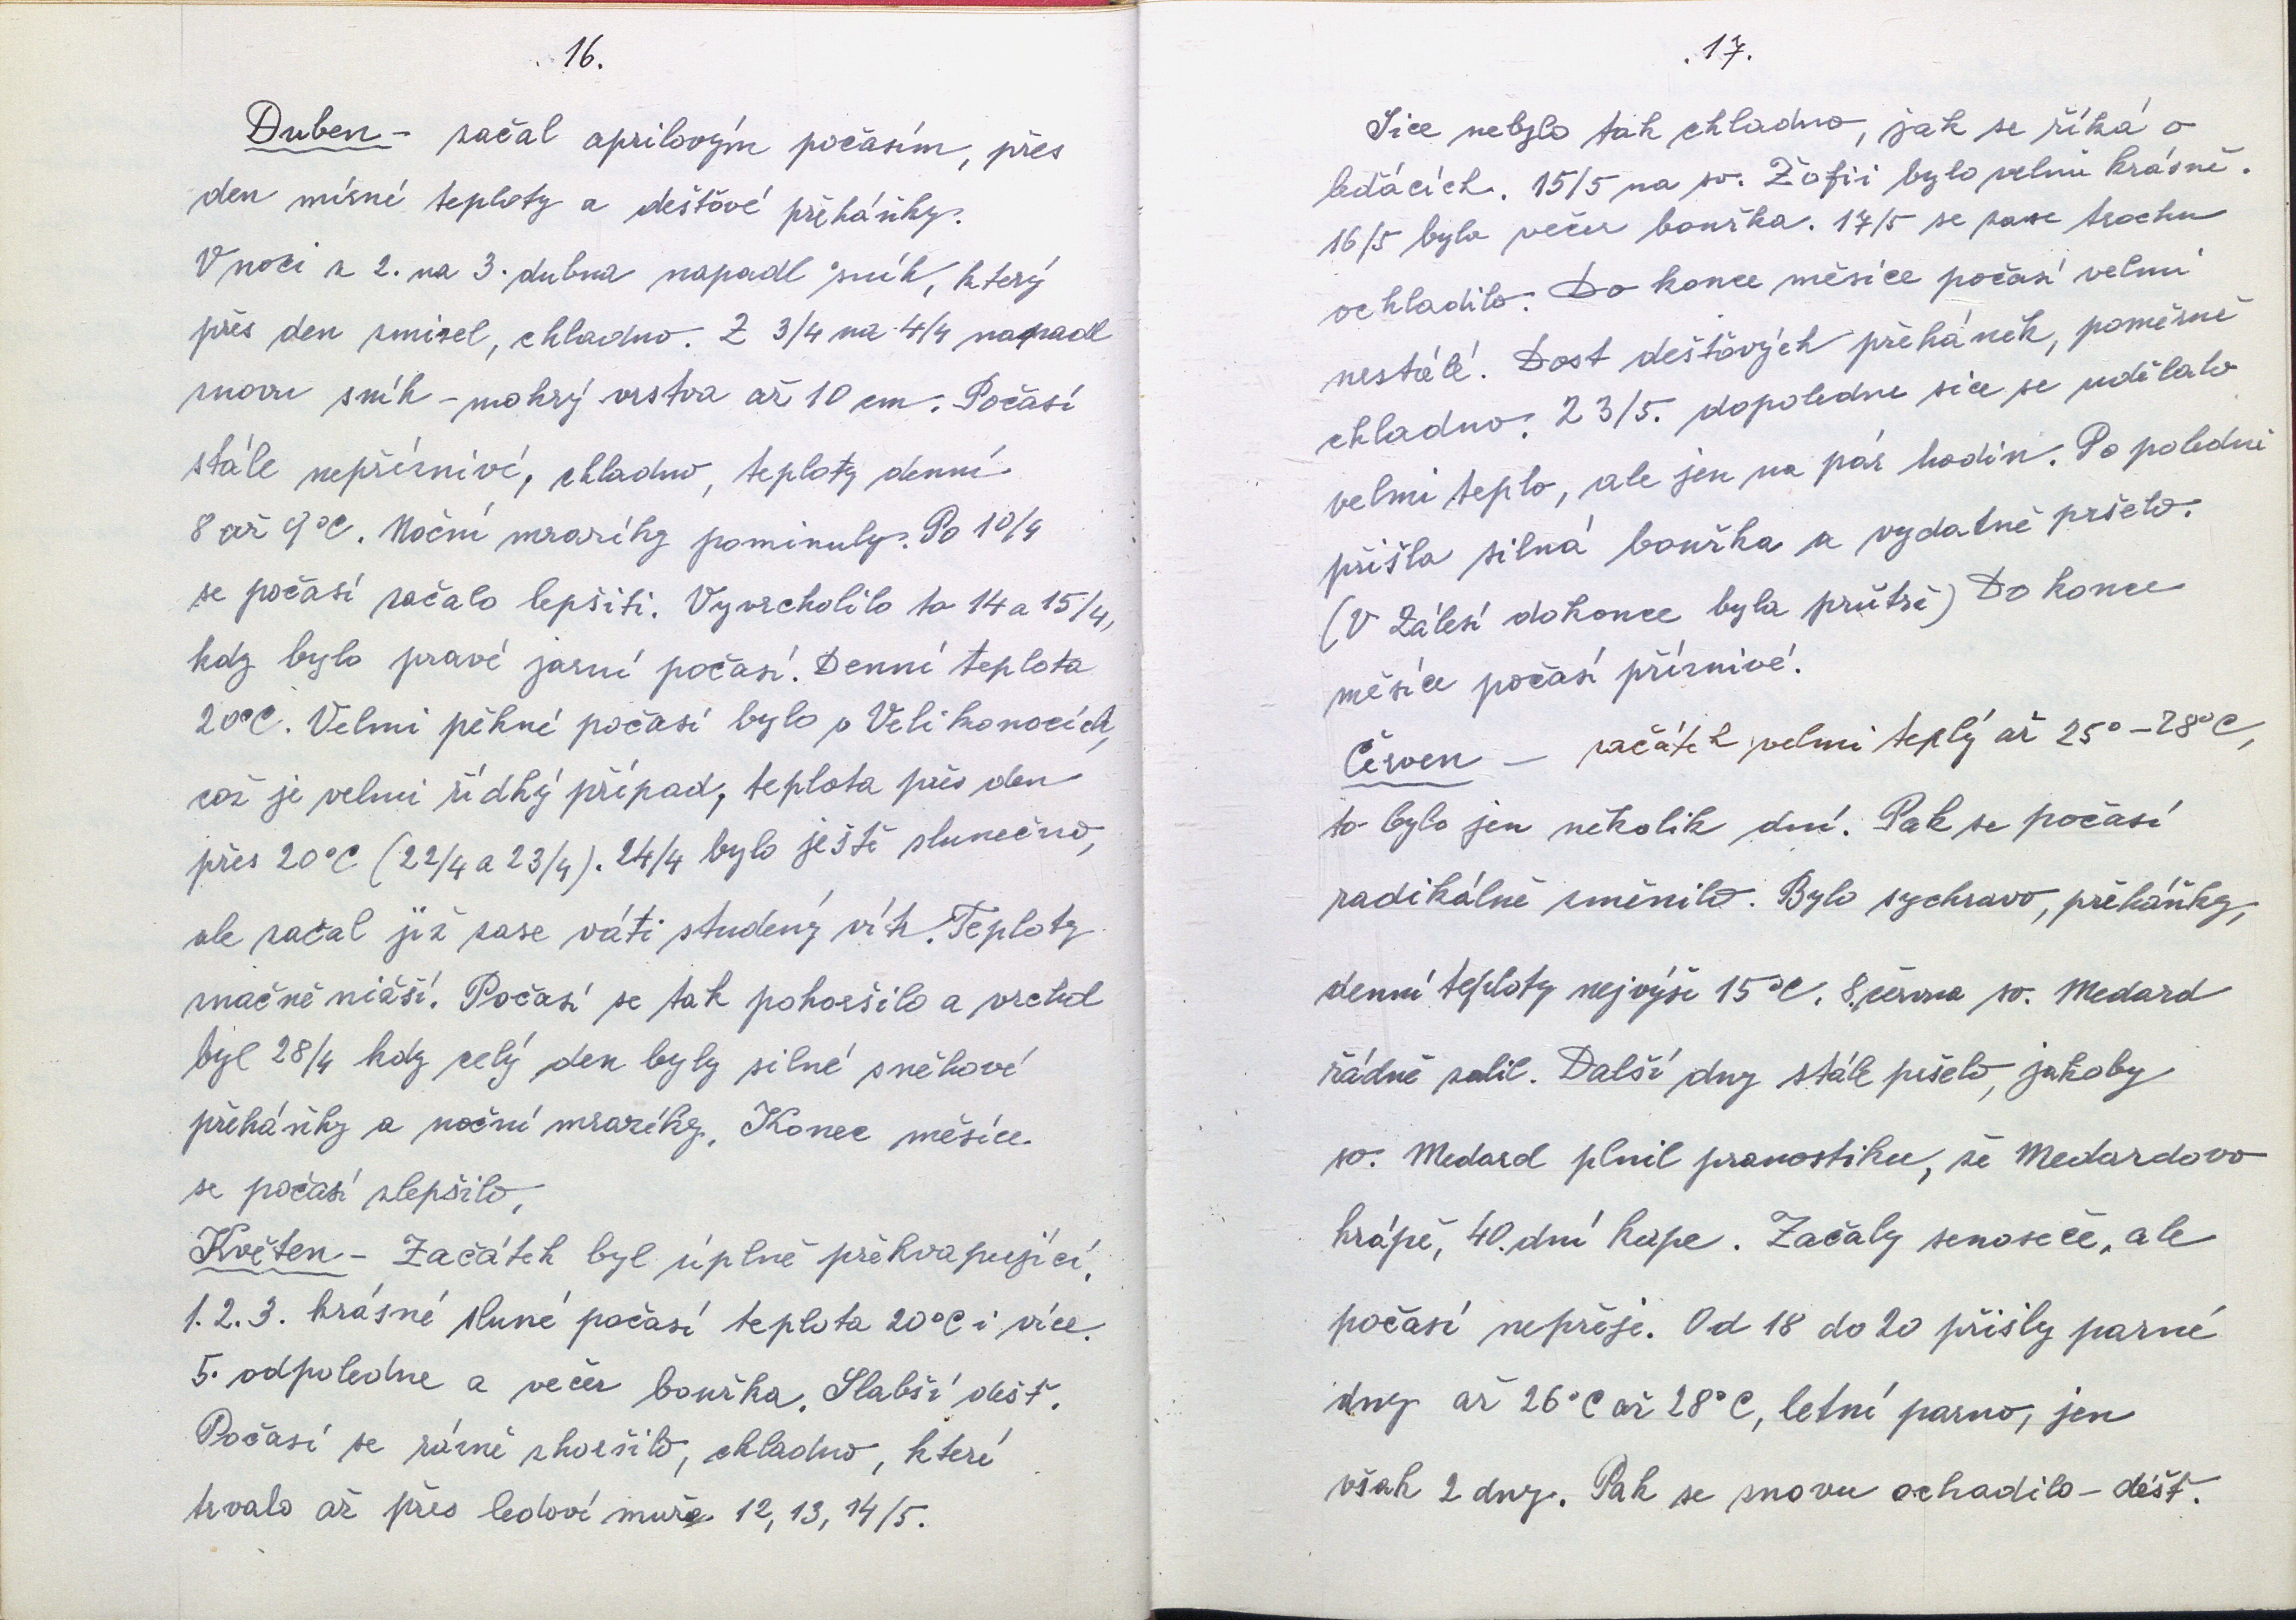 16.
Duben - začal aprilovým počasím, přes
den mírné teploty a dešťové přeháňky.
V noci z 2. na 3. dubna napadl sníh, který
přes den zmizel, chladno. Z 3/4 na 4/4 napadl
znovu sníh - mokrý vrstva až 10 cm. Počasí
stále nepříznivé, chladno, teploty denní
8 až 9°C. Noční mrazíky pominuly. Po 10/4
se počasí začalo lepšiti. Vyvrcholilo to 14 a 15/4,
kdy bylo pravé jarní počasí. Denní teplota
20°C. Velmi pěkné počasí bylo o Velikonocích,
což je velmi řídký případ, teplota přes den
přes 20°C (22/4 a 23/4). 24/4 bylo ještě slunečno,
ale začal již zase váti studený vítr. Teploty
značně nižší. Počasí se tak pohoršilo a vrchol
byl 28/4 kdy celý den byly silné sněhové
přeháňky a noční mrazíky. Konec měsíce
se počasí zlepšilo,
Květen - Začátek byl úplně překvapující.
1. 2. 3. krásné sluné počasí teplota 20°C i více.
5. odpoledne a večer bouřka. Slabší déšť.
Počasí se rázně zhoršilo, chladno, které
trvalo až přes ledové muže 12, 13, 14/5.
17.
Sice nebylo tak chladno, jak se říká o
leďácích. 15/5 na sv. Žofii bylo velmi krásně.
16/5 byla večer bouřka. 17/5 se zase trochu
ochladilo. Do konce měsíce počasí velmi
nestálé. Dost dešťových přeháněk, poměrně
chladno. 23/5. dopoledne sice se udělalo
velmi teplo, ale jen na pár hodin. Po poledni
přišla silná bouřka a vydatně pršelo.
(V Zálesí dokonce byla průtrž) Do konce
měsíce počasí příznivé.
Červen - začátek velmi teplý až 25° - 28°C,
to bylo jen několik dní. Pak se počasí
radikálně změnilo. Bylo sychravo, přeháňky,
denní teploty nejvýše 15°C. 8. června sv. Medard
řádně zalil. Další dny stále pršelo, jakoby
sv. Medard plnil pranostiku, že Medardovo
krápě, 40. dní kape. Začaly senoseče, ale
počasí nepřeje. Od 18 do 20 přišly parné
dny až 26°C až 28°C, letní parno, jen
však 2 dny. Pak se znovu ochadilo - déšť.